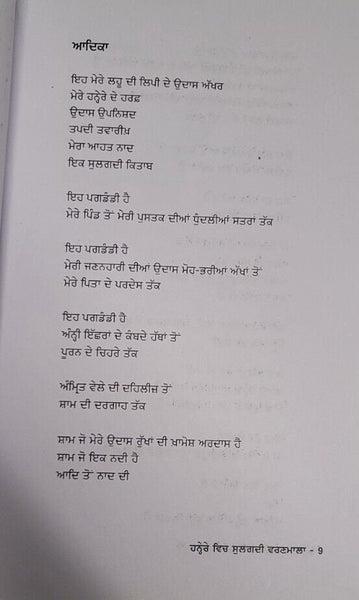 ਆਦਿਕਾ
ਇਹ ਮੇਰੇ ਲਹੂ ਦੀ ਲਿਪੀ ਦੇ ਉਦਾਸ ਅੱਖਰ
ਮੇਰੇ ਹਨ੍ਹੇਰੇ ਦੇ ਹਰਫ਼
ਉਦਾਸ ਉਪਨਿਸ਼ਦ
ਤਪਦੀ ਤਵਾਰੀਖ਼
ਮੇਰਾ ਆਹਤ ਨਾਦ
ਇਕ ਸੁਲਗਦੀ ਕਿਤਾਬ
ਇਹ ਪਗਡੰਡੀ ਹੈ
ਮੇਰੇ ਪਿੰਡ ਤੋਂ ਮੇਰੀ ਪੁਸਤਕ ਦੀਆਂ ਧੁੰਦਲੀਆਂ ਸਤਰਾਂ ਤੱਕ
ਇਹ ਪਗਡੰਡੀ ਹੈ
ਮੇਰੀ ਜਣਨਹਾਰੀ ਦੀਆਂ ਉਦਾਸ ਮੋਹ-ਭਰੀਆਂ ਅੱਖਾਂ ਤੋਂ
ਮੇਰੇ ਪਿਤਾ ਦੇ ਪਰਦੇਸ ਤੱਕ
ਇਹ ਪਗਡੰਡੀ ਹੈ
ਅੰਨ੍ਹੀ ਇੱਛਰਾਂ ਦੇ ਕੰਬਦੇ ਹੱਥਾਂ ਤੋਂ
ਪੂਰਨ ਦੇ ਚਿਹਰੇ ਤੱਕ
ਅੰਮ੍ਰਿਤ ਵੇਲੇ ਦੀ ਦਹਿਲੀਜ਼ ਤੋਂ
ਸ਼ਾਮ ਦੀ ਦਰਗਾਹ ਤੱਕ
ਸ਼ਾਮ ਜੋ ਮੇਰੇ ਉਦਾਸ ਰੁੱਖਾਂ ਦੀ ਖ਼ਾਮੋਸ਼ ਅਰਦਾਸ ਹੈ
ਸ਼ਾਮ ਜੋ ਇਕ ਨਦੀ ਹੈ
ਆਦਿ ਤੋਂ ਨਾਦ ਦੀ
ਹਨ੍ਹੇਰੇ ਵਿਚ ਸੁਲਗਦੀ ਵਰਣਮਾਲਾ - 9